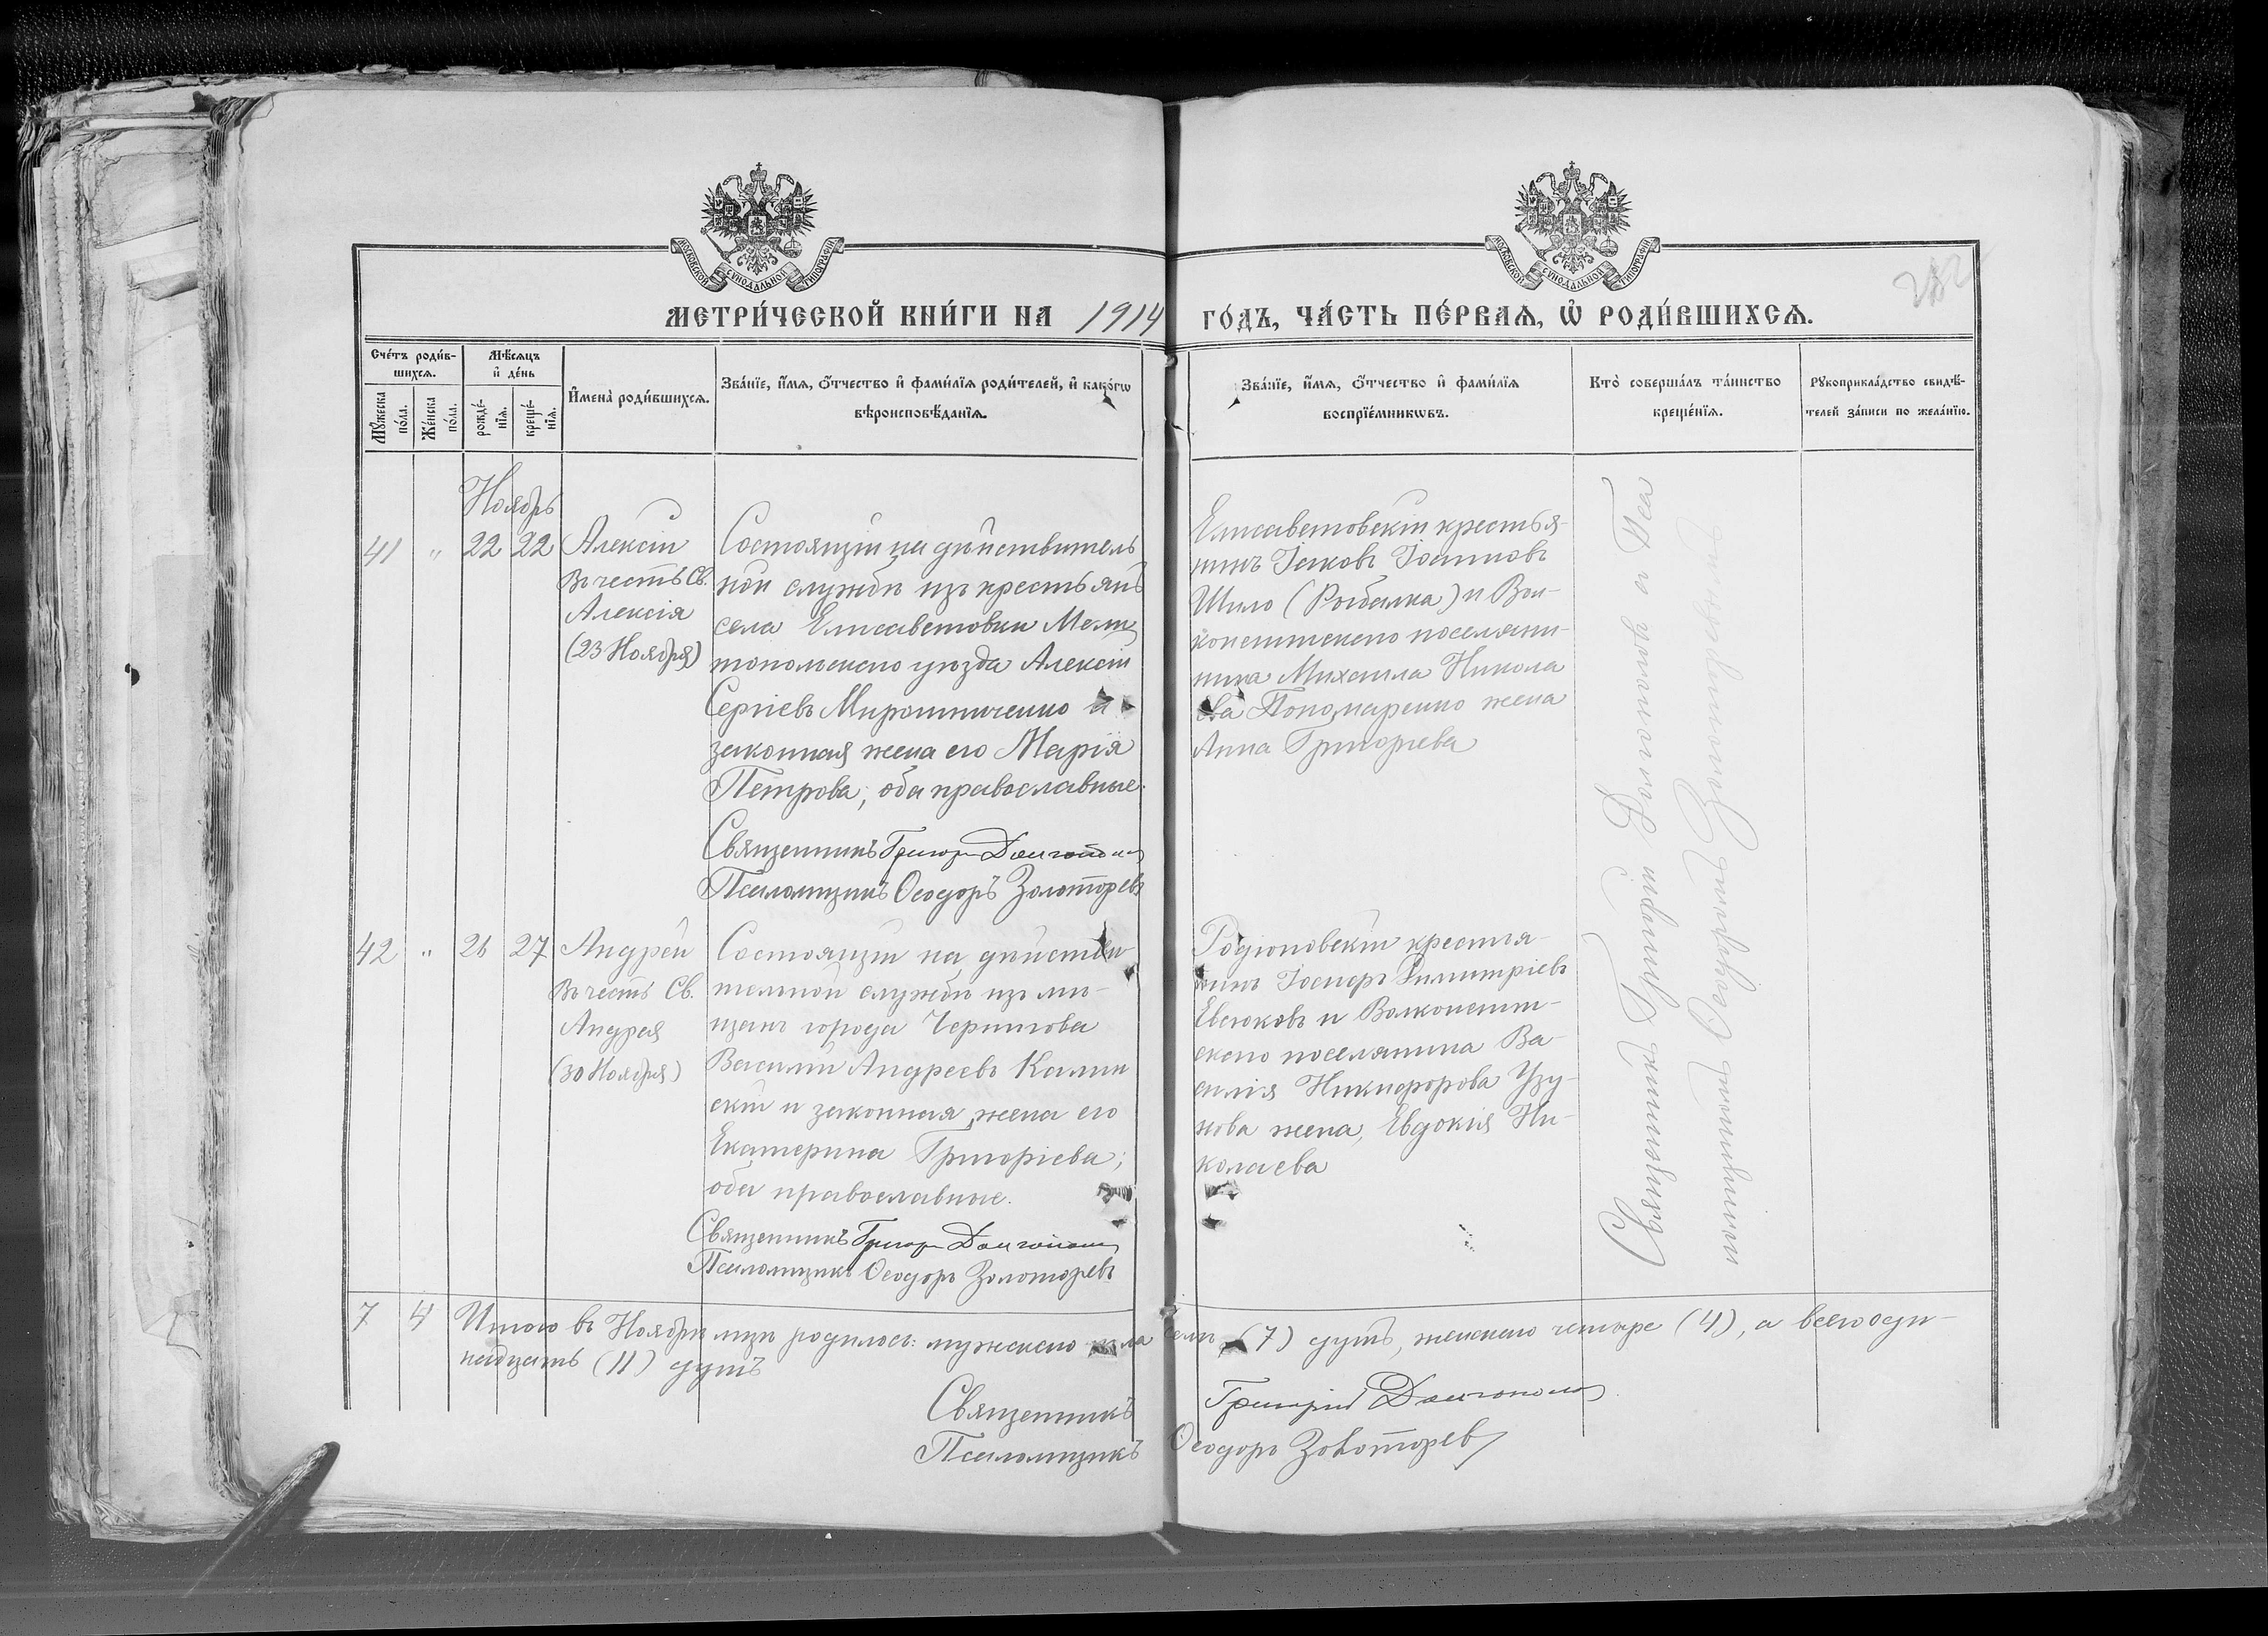 МОСКОВСКОЙ СѴНОДАЛЬНОЙ ТИПОГРАФІИ
МОСКОВСКОЙ СѴНОДАЛЬНОЙ ТИПОГРАФІИ
МЕТРИ́ЧЕСКОЙ КНИ́ГИ НА 1914 ГО́ДЪ, ЧА́СТЬ ПЕ́РВАѦ, Ѡ҆ РОДИ́ВШИХСѦ.
Сче́тъ роди́в-
шихсѧ.
Мѣ́сѧцъ
и҆ де́нь
Мꙋ́жеска
по́ла.
Же́нска
по́ла.
рожде́-
нїѧ.
креще́-
нїѧ.
И҆мена̀ роди́вшихсѧ.
Зва́нїе, и҆́мѧ, ѻ҆́тчество и҆ фами́лїѧ роди́телей, и҆ како́гѡ
вѣроисповѣ́данїѧ.
Зва́нїе, и҆́мѧ, ѻ҆́тчество и҆ фами́лїѧ
воспрїе́мникѡвъ.
Кто̀ соверша́лъ та́инство
креще́нїѧ.
Рꙋкоприкла́дство свидѣ́-
телей за́писи по жела́нїю.
Ноябрь
41 " 22 22
Алексій
Въ честь Св.
Алексія
(23 Ноября)
Состоящій на дѣйствитель
ной службѣ изъ крестьянъ
села Елисаветовки Мели
топольскаго уѣзда Алексій
Сергіевъ Мирошниченко и
законная жена его Марія
Петрова; оба православные.
Священникъ Григорій Долгополовъ
Псаломщикъ Ѳеодоръ Золоторевъ
Елисаветовскій крестья-
нинъ Іаковъ Іоанновъ
Шило (Рыбалка) и Вол-
конештскаго поселяни-
нина Михаила Никола
ева Пономаренко жена
Анна Григорьева
42 " 26 27
Андрей
Въ честь Св.
Андрея
(30 Ноября)
Состоящій на дѣйстви-
тельной службѣ изъ мѣ-
щанъ города Чернигова
Василій Андреевъ Калин
скій и законная жена его
Екатерина Григоріева;
оба православные.
Священникъ Григорій Долгополовъ
Псаломщикъ Ѳеодоръ Золоторевъ
Родіоновскій крестья-
нинъ Іосифъ Димитріевъ
Евсюковъ и Волконешт-
скаго поселянина Ва-
силія Никифорова Узу-
нова жена, Евдокія Ни-
колаева
Священникъ Григорій Долгополовъ и Пса
ломщикъ Ѳеодоръ Золоторевъ
7 4 Итого въ Ноябрѣ мцѣ родилось: мужского пола семь (7) душъ, женскаго четыре (4), а всего оди-
надцать (11) душъ
Священникъ Григорій Долгополовъ
Псаломщикъ Ѳеодоръ Золоторевъ